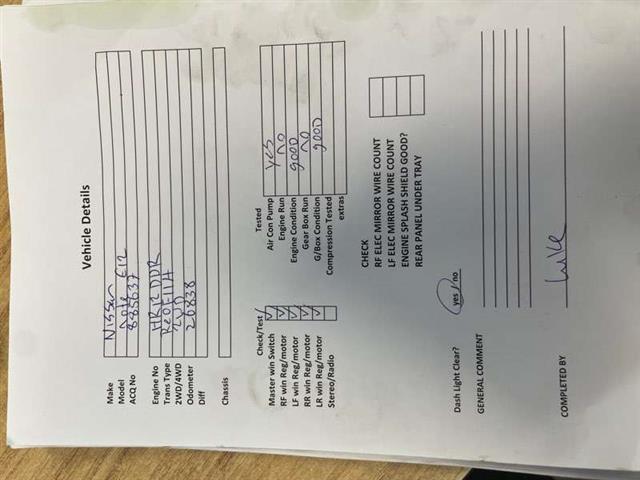 Vehicle Details
Make Nissan
Model Note E12
ACQ No 885637
Engine No HR12DDR
Trans Type
2WD/4WD 2WD
Odometer 20838
Diff
Chassis
Check/Test
Master win Switch ✓
RF win Reg/motor ✓
LF win Reg/motor ✓
RR win Reg/motor ✓
LR win Reg/motor ✓
Stereo/Radio
Tested
Air Con Pump Yes
Engine Run No
Engine Condition GOOD
Gear Box Run No
G/Box Condition GOOD
Compression Tested
extras
CHECK
RF ELEC MIRROR WIRE COUNT
LF ELEC MIRROR WIRE COUNT
ENGINE SPLASH SHIELD GOOD?
REAR PANEL UNDER TRAY
Dash Light Clear? yes / no
GENERAL COMMENT
COMPLETED BY